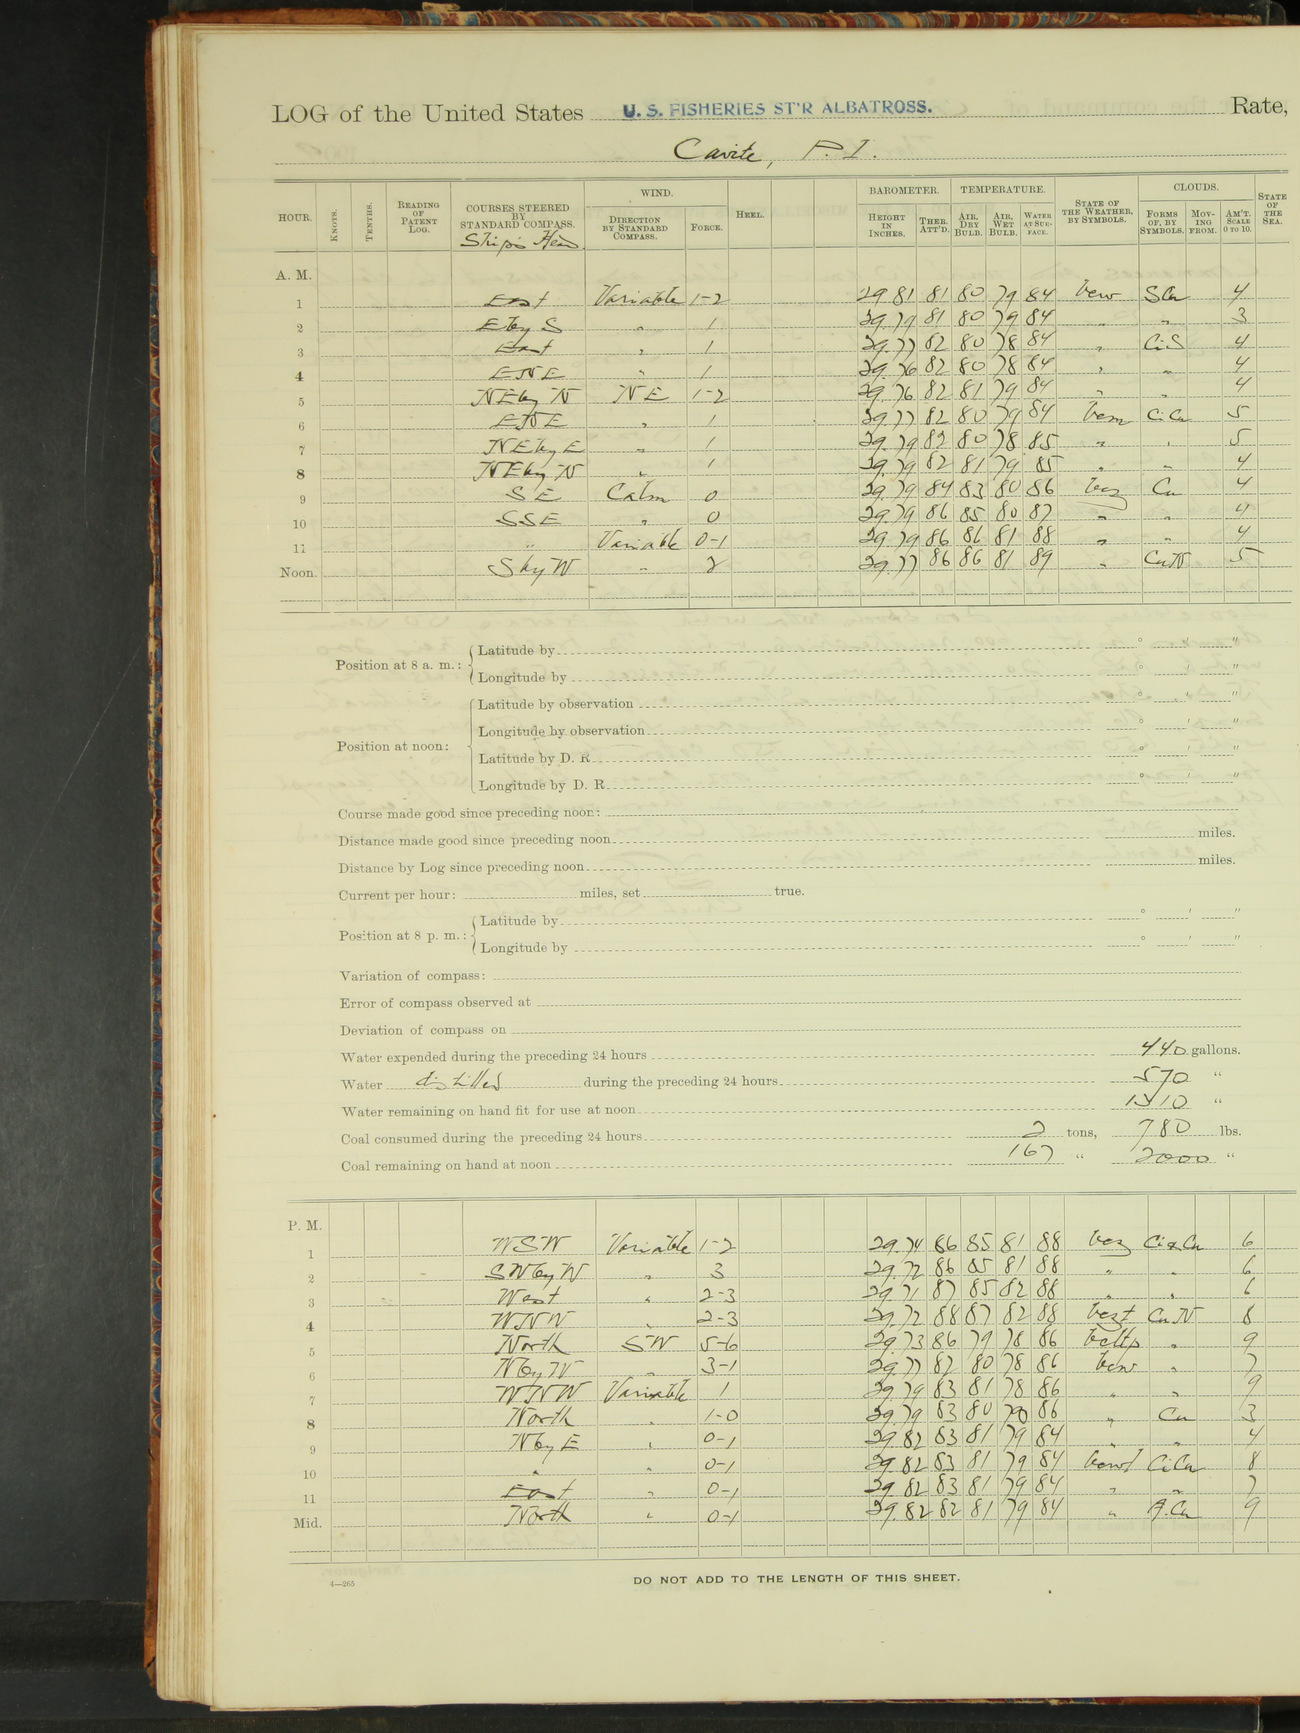 LOG of the United States U. S. FISHERIES ST'R ALBATROSS. Rate,
Cavite, P. I.
HOUR. KNOTS. TENTHS. READING OF PATENT LOG. COURSES STEERED BY STANDARD COMPASS. Ship's Head WIND. DIRECTION BY STANDARD COMPASS. FORCE. HEEL. BAROMETER. HEIGHT IN INCHES. THER. ATT'D. TEMPERATURE. AIR, DRY BULB. AIR, WET BULB. WATER AT SURFACE. STATE OF THE WEATHER, BY SYMBOLS. CLOUDS. FORMS OF, BY SYMBOLS. MOVING FROM. AM'T. SCALE 0 TO 10. STATE OF THE SEA.
A. M.
1 East Variable 1-2 29 81 81 80 79 84 bcw SCu 4
2 E by S " 1 29.79 81 80 79 84 " " 3
3 East " 1 29.77 82 80 78 84 " CiS 4
4 ENE " 1 29.76 82 80 78 84 " " 4
5 NE by N NE 1-2 29.76 82 81 79 84 " " 4
6 ENE " 1 29.77 82 80 79 84 bcm CiCu 5
7 NE by E " 1 29.79 82 80 78 85 " " 5
8 NE by N " 1 29.79 82 81 79 85 " " 4
9 SE Calm 0 29.79 84 83 80 86 bcz Cu 4
10 SSE " 0 29.79 86 85 80 87 " " 4
11 " Variable 0-1 29.79 86 86 81 88 " " 4
Noon. S by W " 2 29.77 86 86 81 89 " CuN 5
Position at 8 a. m.: Latitude by ° ' "
Longitude by ° ' "
Position at noon: Latitude by observation ° ' "
Longitude by observation ° ' "
Latitude by D. R. ° ' "
Longitude by D. R. ° ' "
Course made good since preceding noon:
Distance made good since preceding noon miles.
Distance by Log since preceding noon miles.
Current per hour: miles, set true.
Position at 8 p. m.: Latitude by ° ' "
Longitude by ° ' "
Variation of compass:
Error of compass observed at
Deviation of compass on
Water expended during the preceding 24 hours 440 gallons.
Water distilled during the preceding 24 hours 570 "
Water remaining on hand fit for use at noon "
Coal consumed during the preceding 24 hours 2 tons, 780 lbs.
Coal remaining on hand at noon 167 " 2000 "
P. M.
1 WSW Variable 1-2 29.74 86 85 81 88 bcz Ci&Cu 6
2 SW by W " 3 29.72 86 85 81 88 " " 6
3 West " 2-3 29.71 87 85 82 88 " " 6
4 WNW " 2-3 29.72 88 87 82 88 bczt CuN 8
5 North SW 5-6 29.73 86 79 78 86 " 9
6 N by W " 3-1 29.77 82 80 78 86 bcw " 7
7 WNW Variable 1 29.79 83 81 78 86 " " 9
8 North " 1-0 29.79 83 80 86 " Cu 3
9 N by E " 0-1 29.82 83 81 79 84 " " 4
10 " " 0-1 29.82 83 81 79 84 CiCu 8
11 East " 0-1 29.82 83 81 79 84 " " 7
Mid. North " 0-1 29.82 82 81 79 84 " A.Cu 9
4—265
DO NOT ADD TO THE LENGTH OF THIS SHEET.